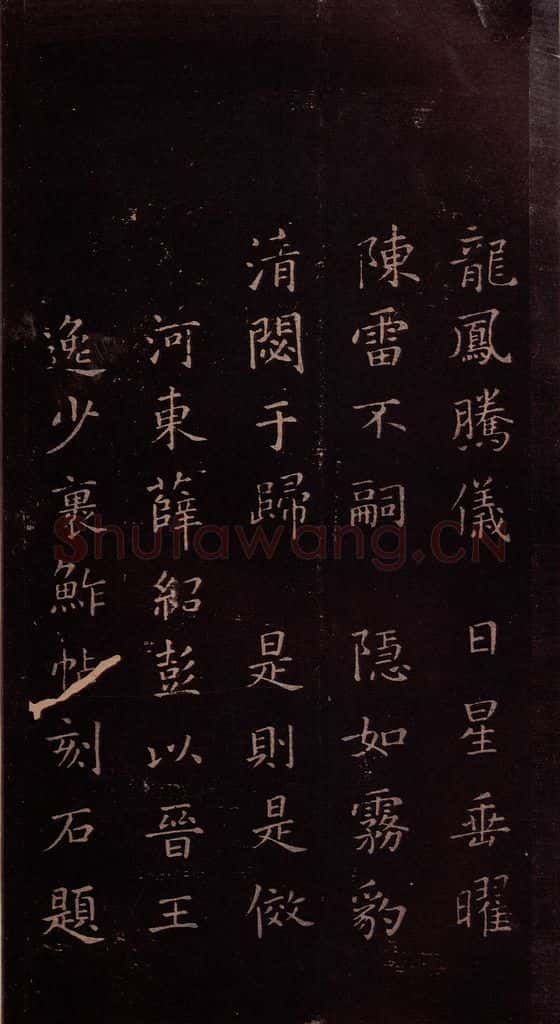 龍鳳騰儀 日星垂曜
陳雷不嗣 隱如霧豹
清閟于歸 是則是傚
河東薛紹彭以晉王
逸少裹鮓帖刻石題
Shufawang.CN